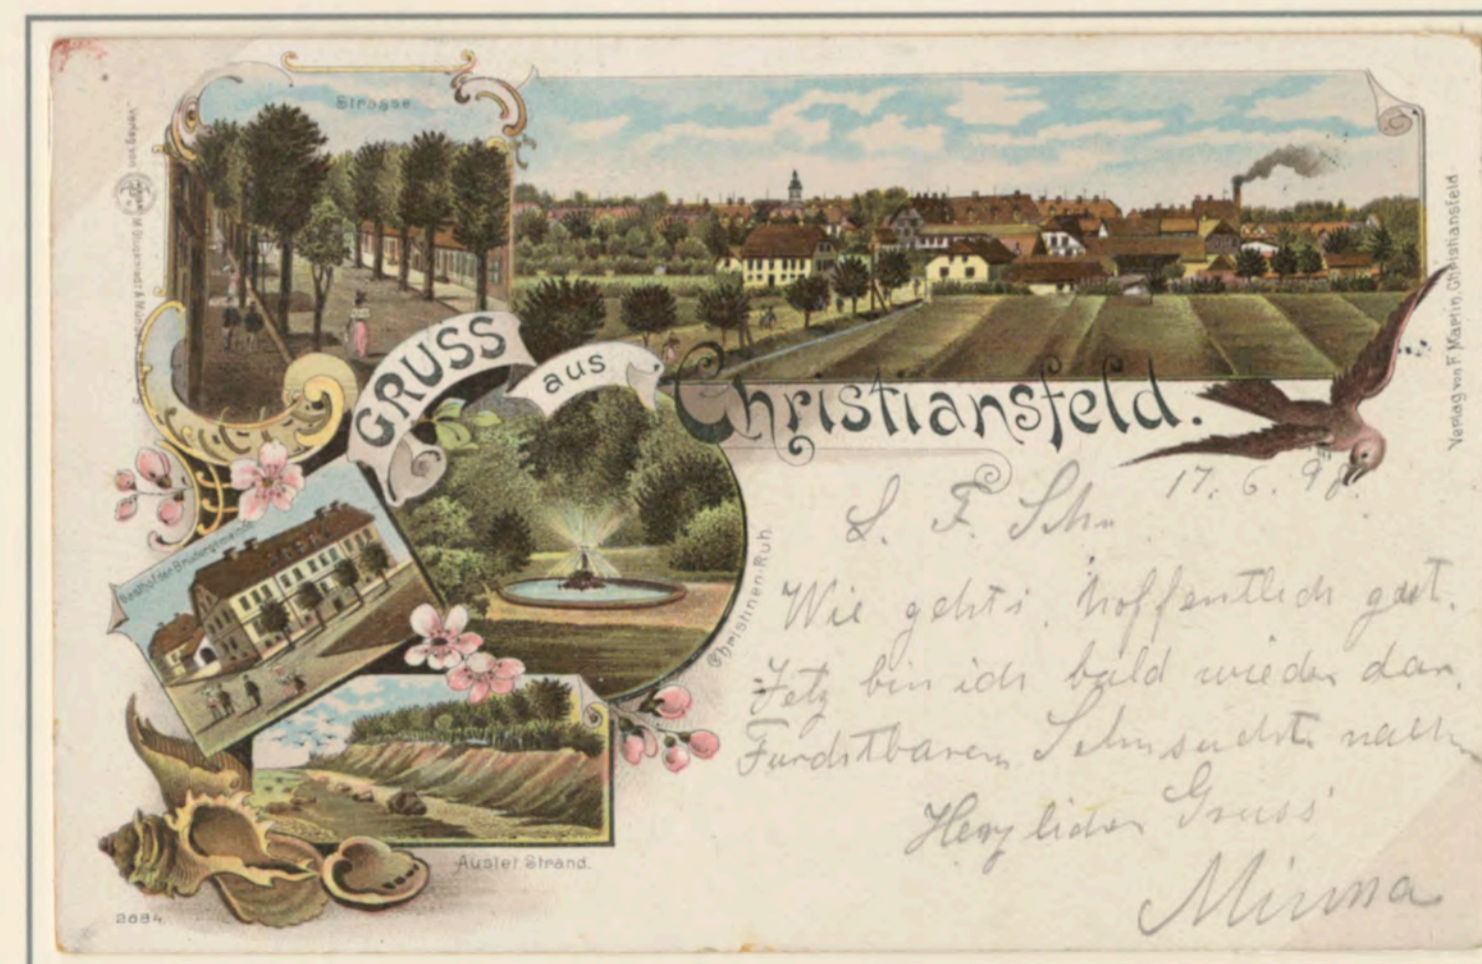 Strasse.
GRUSS
aus
Christiansfeld.
Verlag von F. Martin, Christiansfeld.
Verlag von
Gasthof der Brüdergemeinde
Christinen-Ruh.
Auslet Strand.
2684.
17. 6. 98.
L. F. Sch.
Wie gehts, hoffentlich gut.
Jetz bin ich bald wieder dar.
Furchtbaren Sehnsucht nach
Herzlichen Gruss
Minna